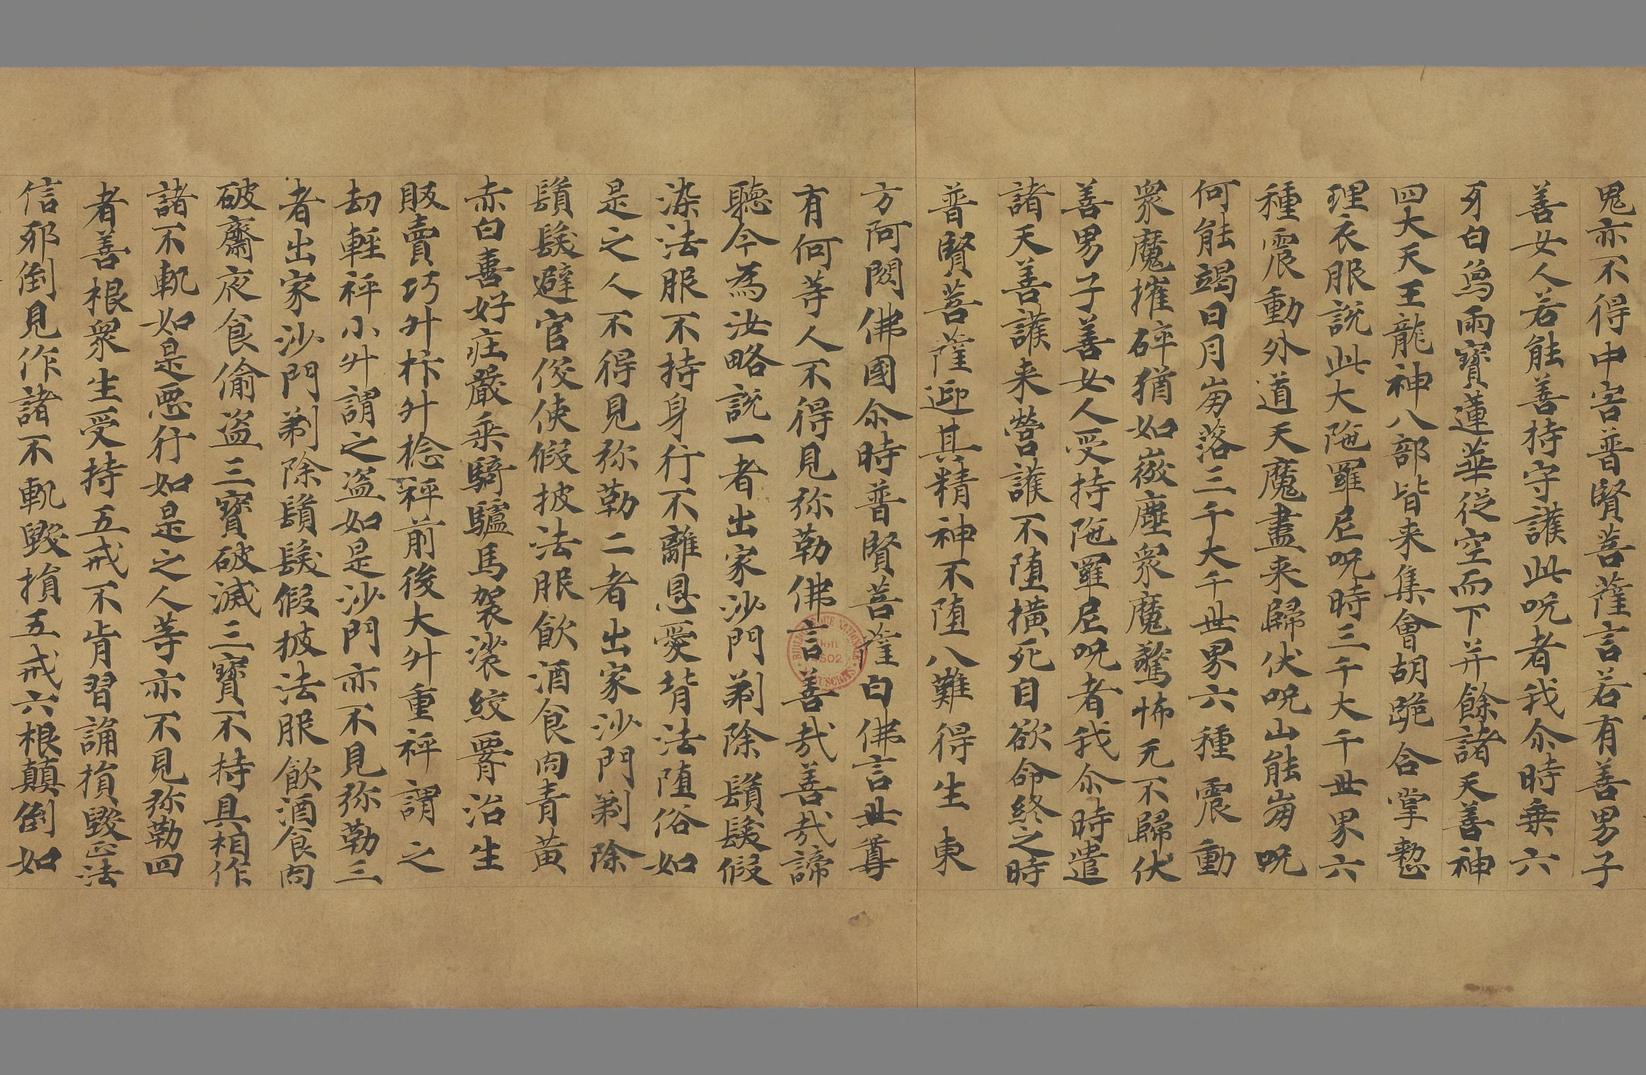 鬼亦不得中害普賢菩薩言若有善男子
善女人若能善持守護此呪者我尒時乗六
牙白象雨寳蓮華從空而下并餘諸天善神
四大天王龍神八部皆来集會胡跪合掌整
理衣服説此大陁羅尼呪時三千大千世界六
種震動外道天魔盡来歸伏呪山能崩呪
何能竭日月崩落三千大千世界六種震動
衆魔摧碎猶如微塵衆魔驚怖无不歸伏
善男子善女人受持陁羅尼呪者我尒時遣
諸天善護来營護不墮橫死自欲命終之時
普賢菩薩迎其精神不墮八難得生東
方阿閦佛國尒時普賢菩薩白佛言世尊
有何等人不得見弥勒佛言善㢤善㢤諦
聽今為汝略説一者出家沙門剃除鬚髮假
染法服不持身行不離恩愛背法墮俗如
是之人不得見弥勒二者出家沙門剃除
鬚髮避官伇使假披法服飲酒食肉青黄
赤白喜好庄嚴乗騎驢馬袈裟絞䙅治生
販賣巧升柞升捻秤前後大升重秤謂之
刼輕秤小升謂之盗如是沙門亦不見弥勒三
者出家沙門剃除鬚髮假披法服飲酒食肉
破齋夜食偷盗三寳破滅三寳不持具相作
諸不軌如是悪行如是之人等亦不見弥勒四
者善根衆生受持五戒不肯習誦損毀正法
信邪倒見作諸不軌毀損五戒六根顛倒如